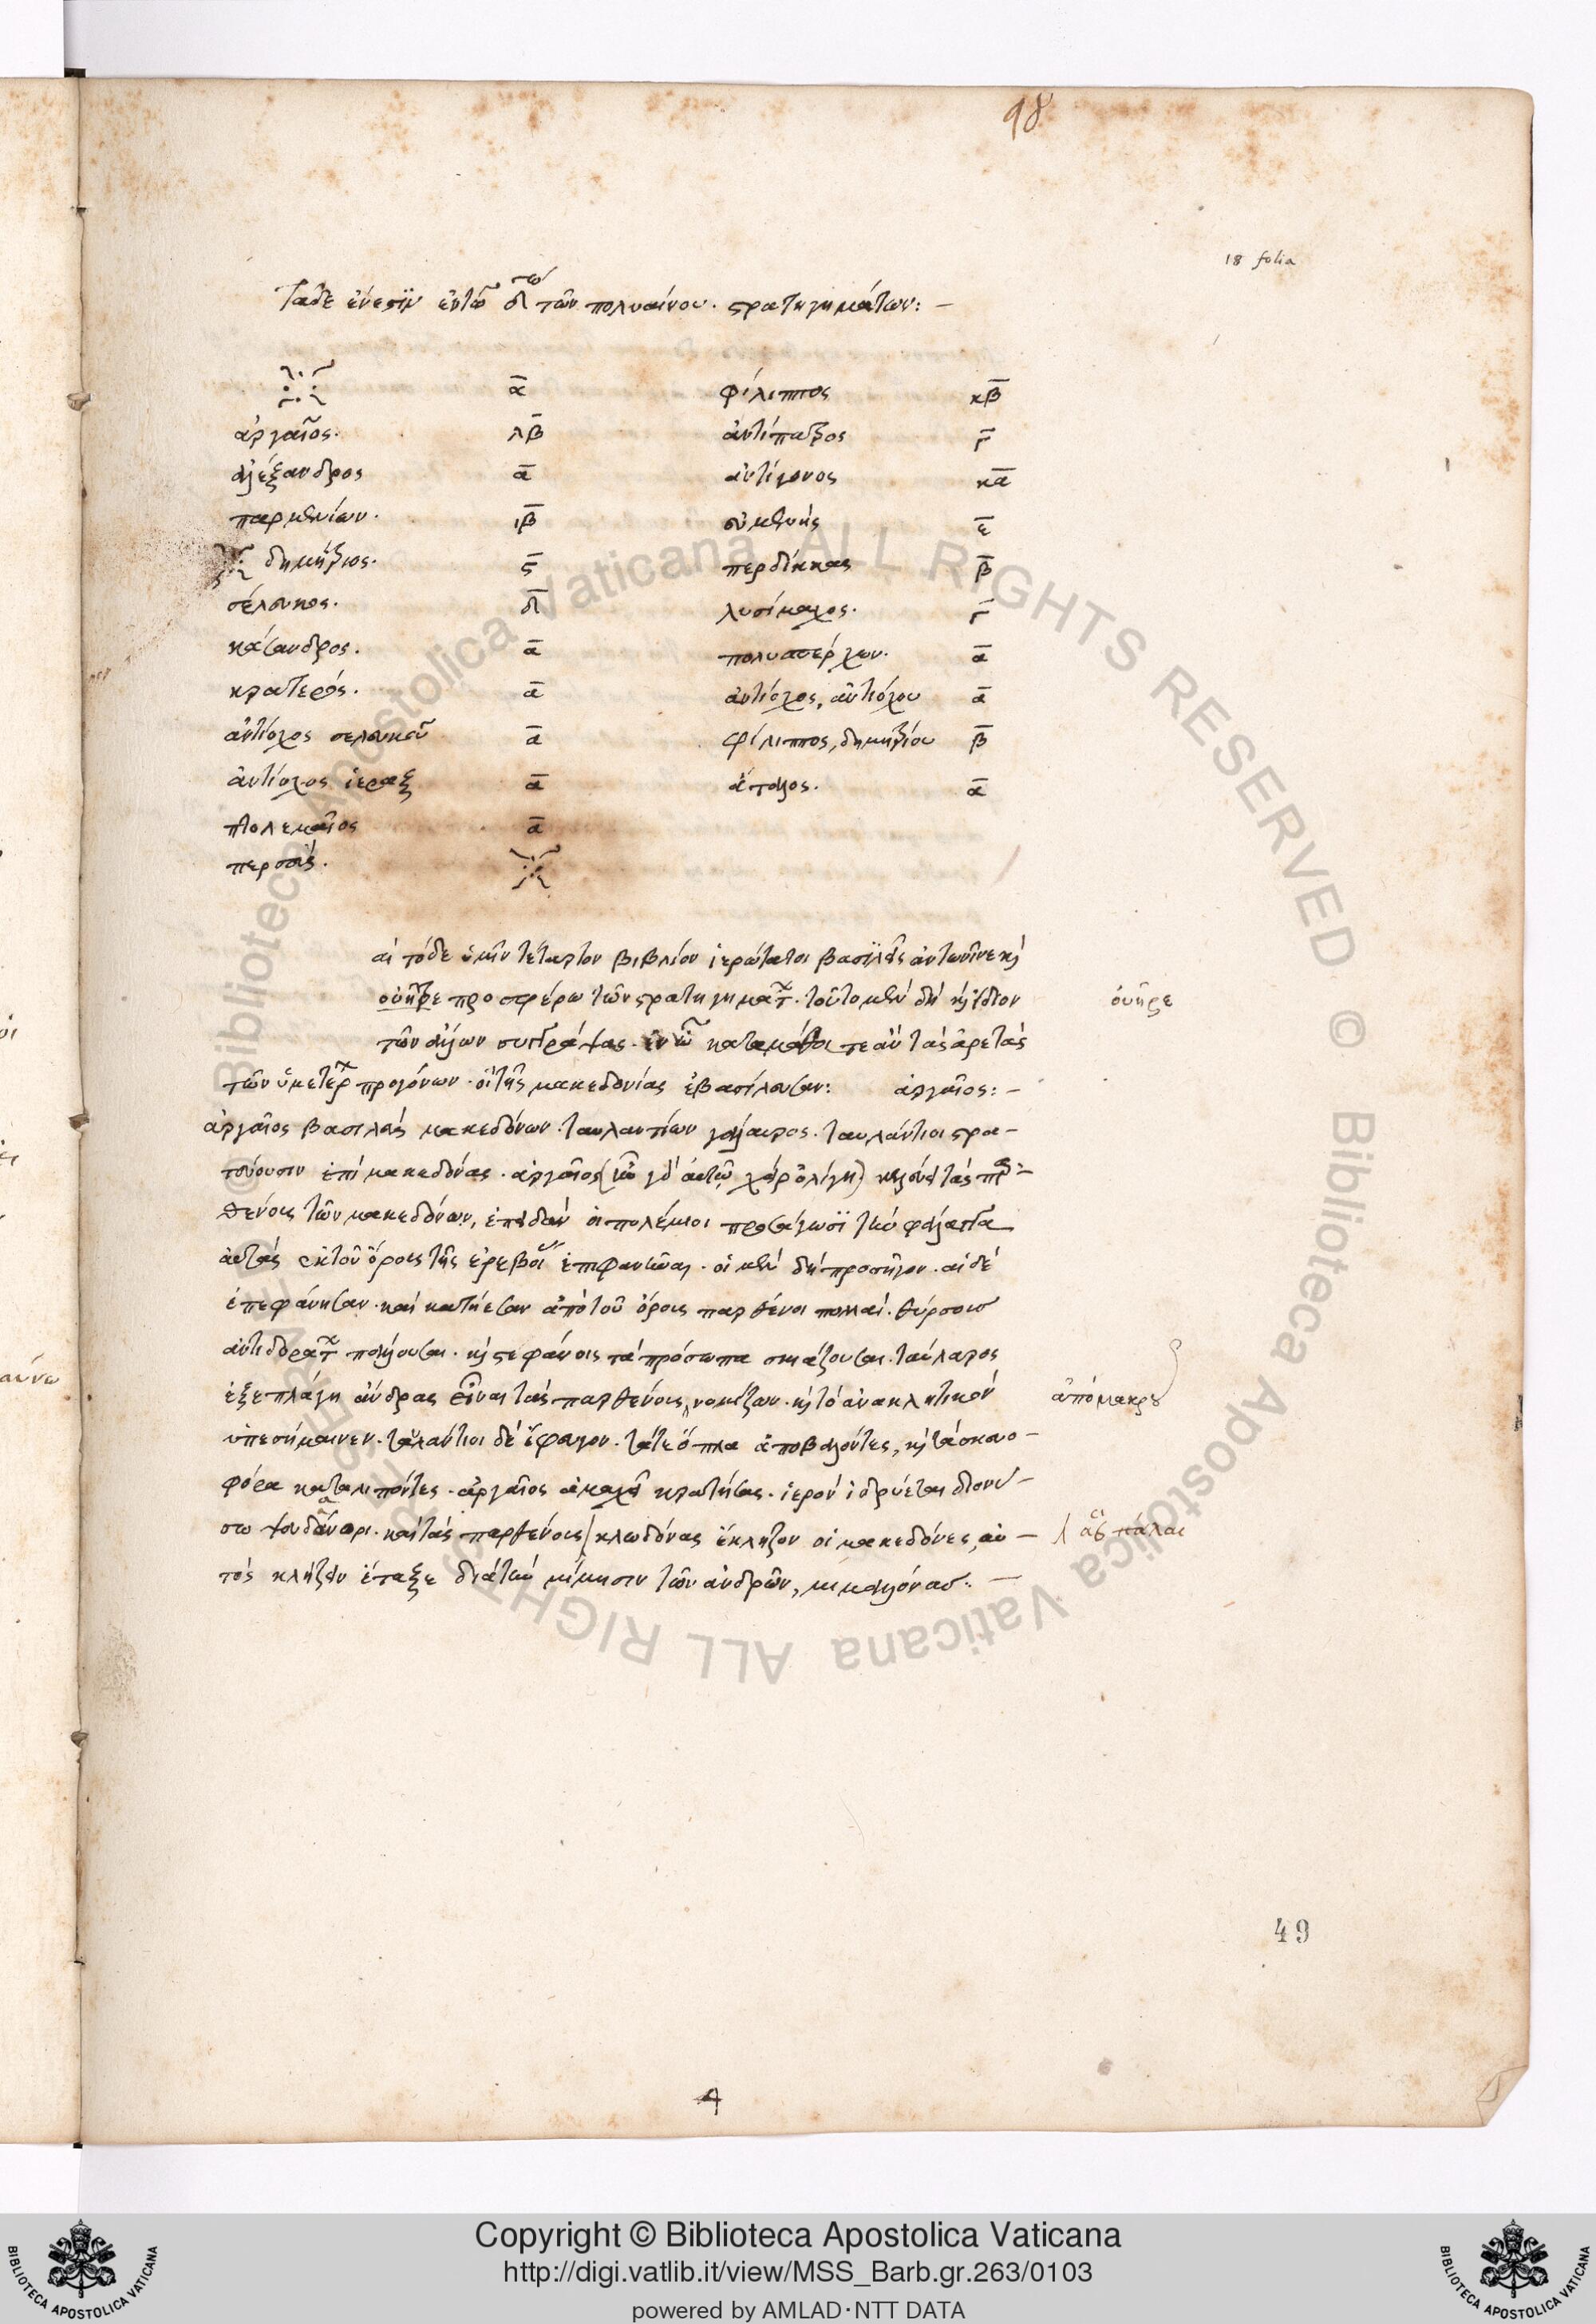 98
18 folia
τάδε ἔνεστιν ἐν τῶ δ τω τῶν πολυαίνου στρατηγημάτων:—
α φίλιππος κβ
ἀργαῖος. λβ ἀντίπατρος γ
ἀλέξανδρος α ἀντίγονος κα
παρμενίων. ιβ εὐμενής ε
δημήτριος. ς περδίκκας β
σέλευκος. δ λυσίμαχος. γ
κάσανδρος. α πολυσπέρχων. α
κρατερός. α ἀντίοχος, ἀντιόχου α
ἀντίοχος σελεύκου α φίλιππος, δημητρίου β
ἀντίοχος ἱεραξ α ἄταλος. α
πτολεμαῖος α
περσεύς.
αι τόδε ὑμῖν τέταρτον βιβλίον ἱερώτατοι βασιλεῖς ἀντωνῖνε καὶ
οὐῆρε προσφέρω τῶν στρατηγημάτ. τοῦτο μὲν δὴ καὶ ἴδιον οὐῆρε
τῶν ἄλλων συγγράψας. ἐν ὧ καταμάθοιτε ἂν τὰς ἀρετὰς
τῶν ὑμετέρ προγόνων. οἳ τῆς μακεδονίας ἐβασίλευσαν: ἀργαῖος:—
ἀργαῖος βασιλεὺς μακεδόνων. ταυλαντίων γάλαυρος. ταυλάντιοι στρα-
τεύουσιν ἐπὶ μακεδόνας. ἀργαῖος (ἦν γὰρ αὐτῶ χεὶρ ὀλίγη) κελεύει τὰς παρ-
θένους τῶν μακεδόνων, ἐπειδὰν οἱ πολέμιοι προσάγωσι τὴν φάλαγγα
αὐτὰς ἐκ τοῦ ὄρους τῆς ἐρεβοί ἐπιφανῆναι. οἱ μὲν δὴ προσῆγον. αἱ δὲ
ἐπεφάνησαν. καὶ κατήεσαν ἀπὸ τοῦ ὄρους παρθένοι πολλαί. θύρσους
ἀντὶ δοράτ πάλλουσαι. καὶ στεφάνοις τὰ πρόσωπα σκιάζουσαι. γαύλαρος
ἐξεπλάγη ἄνδρας εἶναι τὰς παρθένους νομίζων. καὶ τὸ ἀνακλητικὸν ἀπὸ μακροῦ
ὑπεσήμαινεν. ταυλάντιοι δὲ ἔφευγον. τά τε ὅπλα ἀποβαλόντες, καὶ τὰ σκευο-
φόρα καταλιπόντες. ἀργαῖος ἀμαχεὶ κρατήσας. ἱερὸν ἱδρύεται διονύ-
σω ψευδάνορι. καὶ τὰς παρθένους κλώδονας ἔκληζον οἱ μακεδόνες, αὐ- ἃς πάλαι
τὸς κλήζειν ἔταξε διὰ τὴν μίμησιν τῶν ἀνδρῶν, μιμαλόνας:—
49
4
Copyright © Biblioteca Apostolica Vaticana
http://digi.vatlib.it/view/MSS_Barb.gr.263/0103
powered by AMLAD·NTT DATA